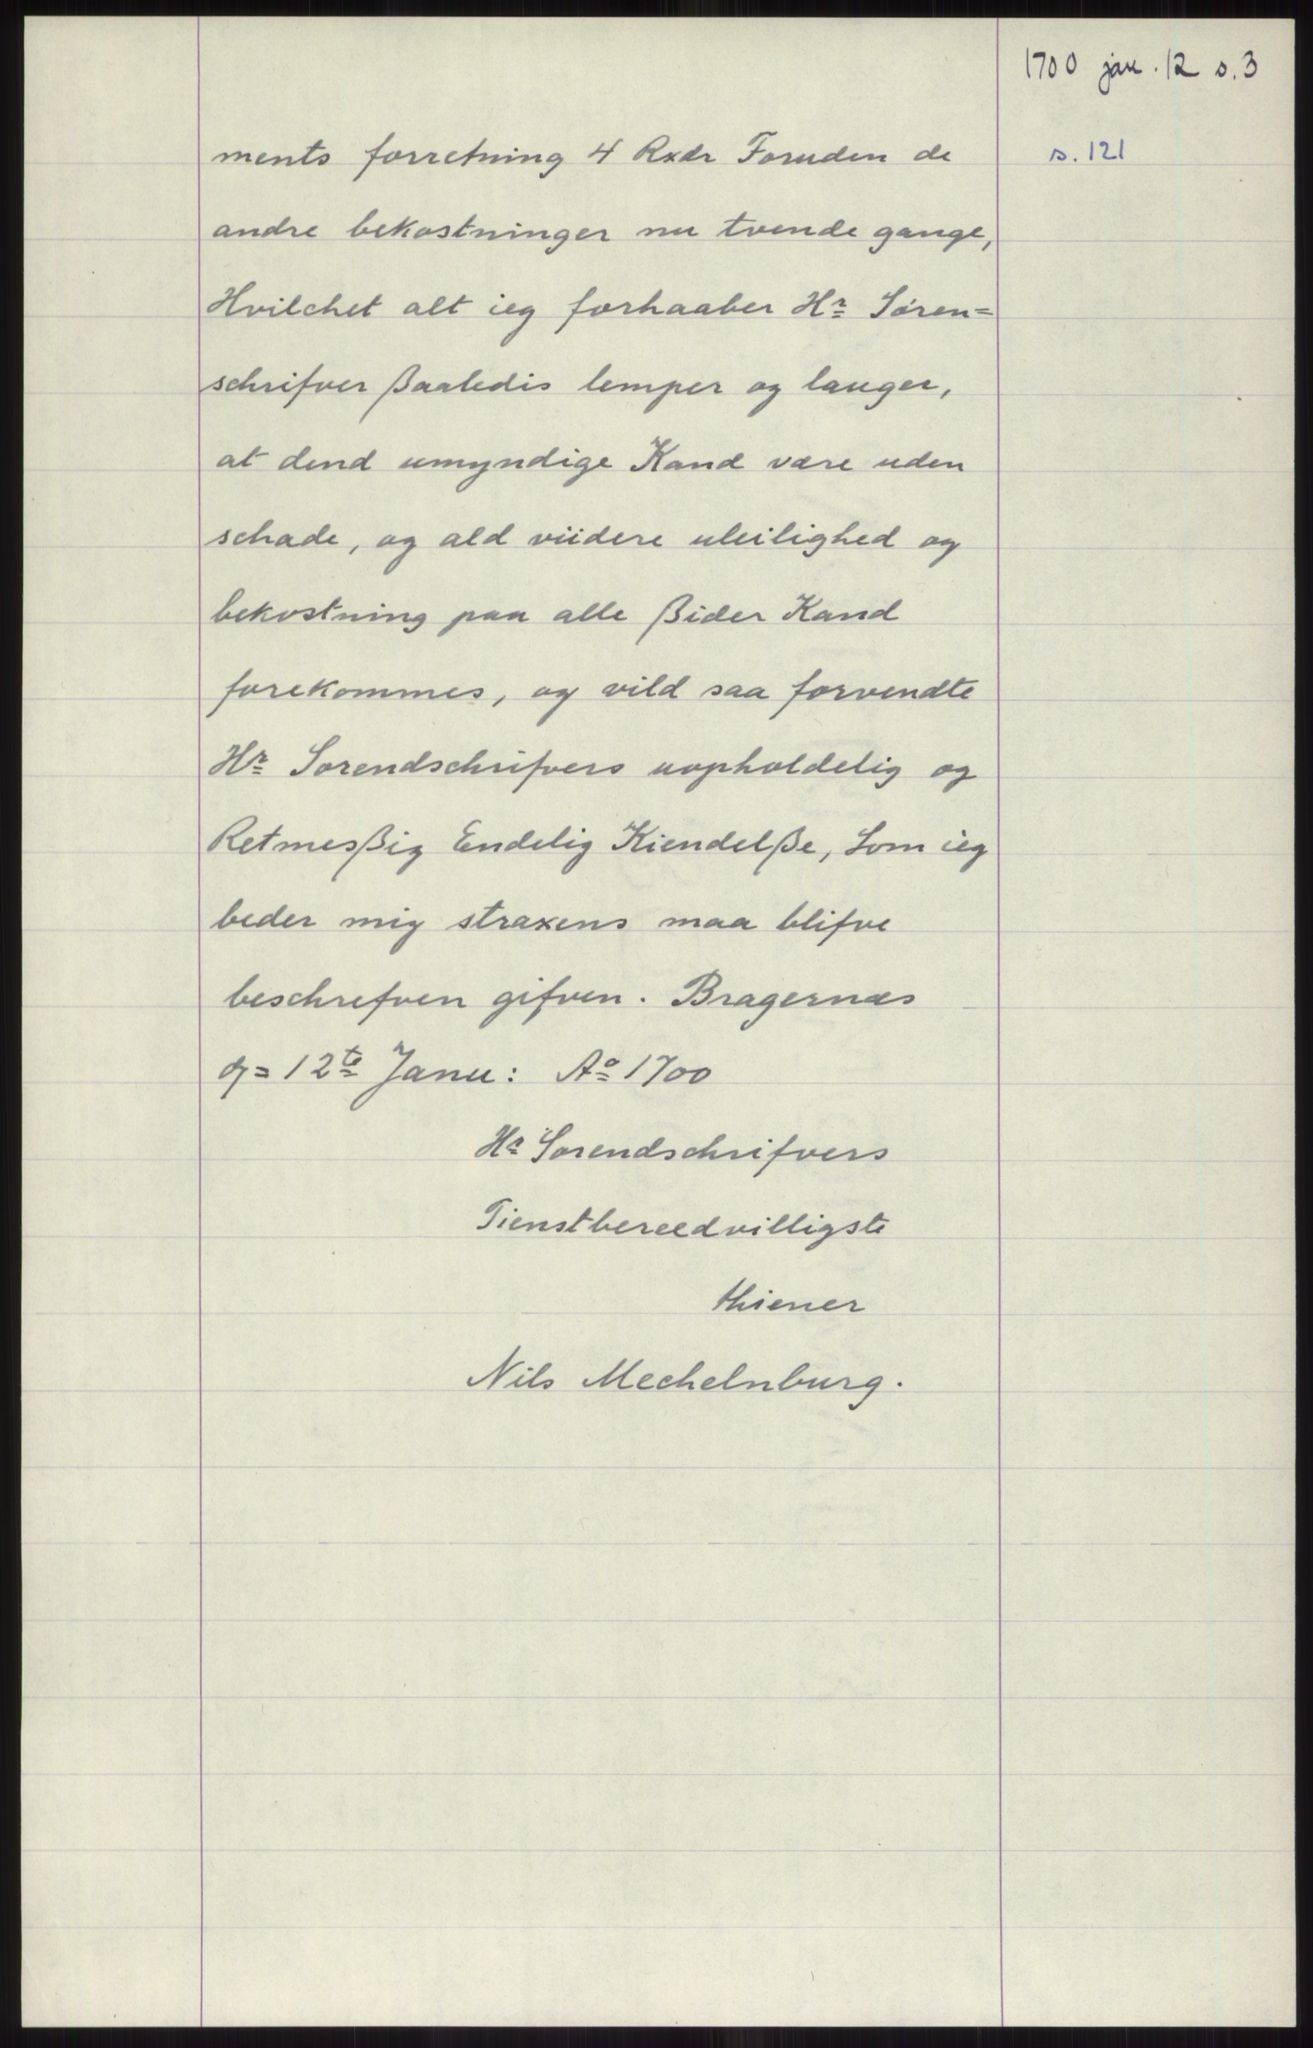 1700 jan. 12 s. 3
s. 121
ments forretning 4 Rxdr Foruden de
andre bekostninger nu tvende gange,
Hvilchet alt ieg forhaaber Hr Søren=
schrifver ßaaledis lemper og lauger,
at dend umyndige Kand være uden
schade, og ald viidere uleilighed og
bekostning paa alle ßider Kand
forekommes, og vild saa forvendte
Hr Sorendschrifvers uopholdelig og
Retmesßig Endelig Kiendelße, Som ieg
beder mig straxens maa blifve
beschrefven gifven. Bragernæs
d= 12te Janu: Ao 1700
Hr Sorendschrifvers
Tienstbereedvilligste
thiener
Nils Mechelnburg.